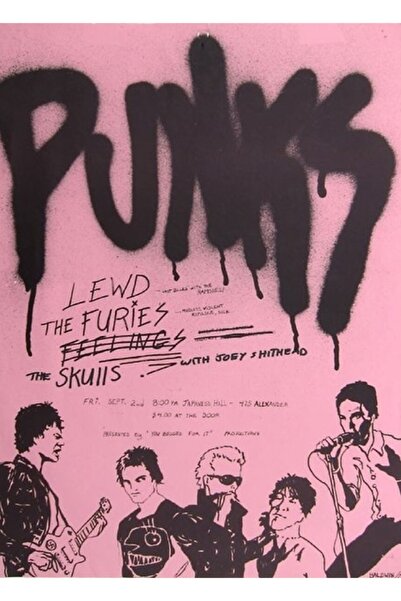 PUNKS
LEWD LAST BILLED WITH THE RAMONES!
THE FURiES
FEELINGS
THE SKUllS WITH JOEY SHITHEAD
FRI. SEPT. 2nd 8:00 PM JAPANESE HALL - 475 ALEXANDER
$4.00 AT THE DOOR
PRESENTED by "YOU BEGGED FOR IT" PRODUCTIONS
BALDWIN